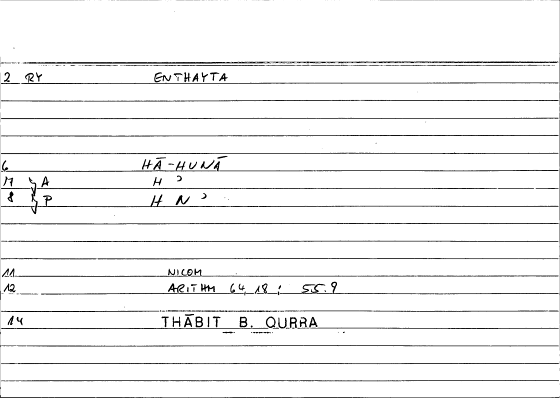 2 RY ENTHAYTA
6 HĀ-HUNĀ
17 A H ʾ
8 P H N ʾ
11 NICOM
12 ARITHM 64,18; 55.9
14 THĀBIT B. QURRA